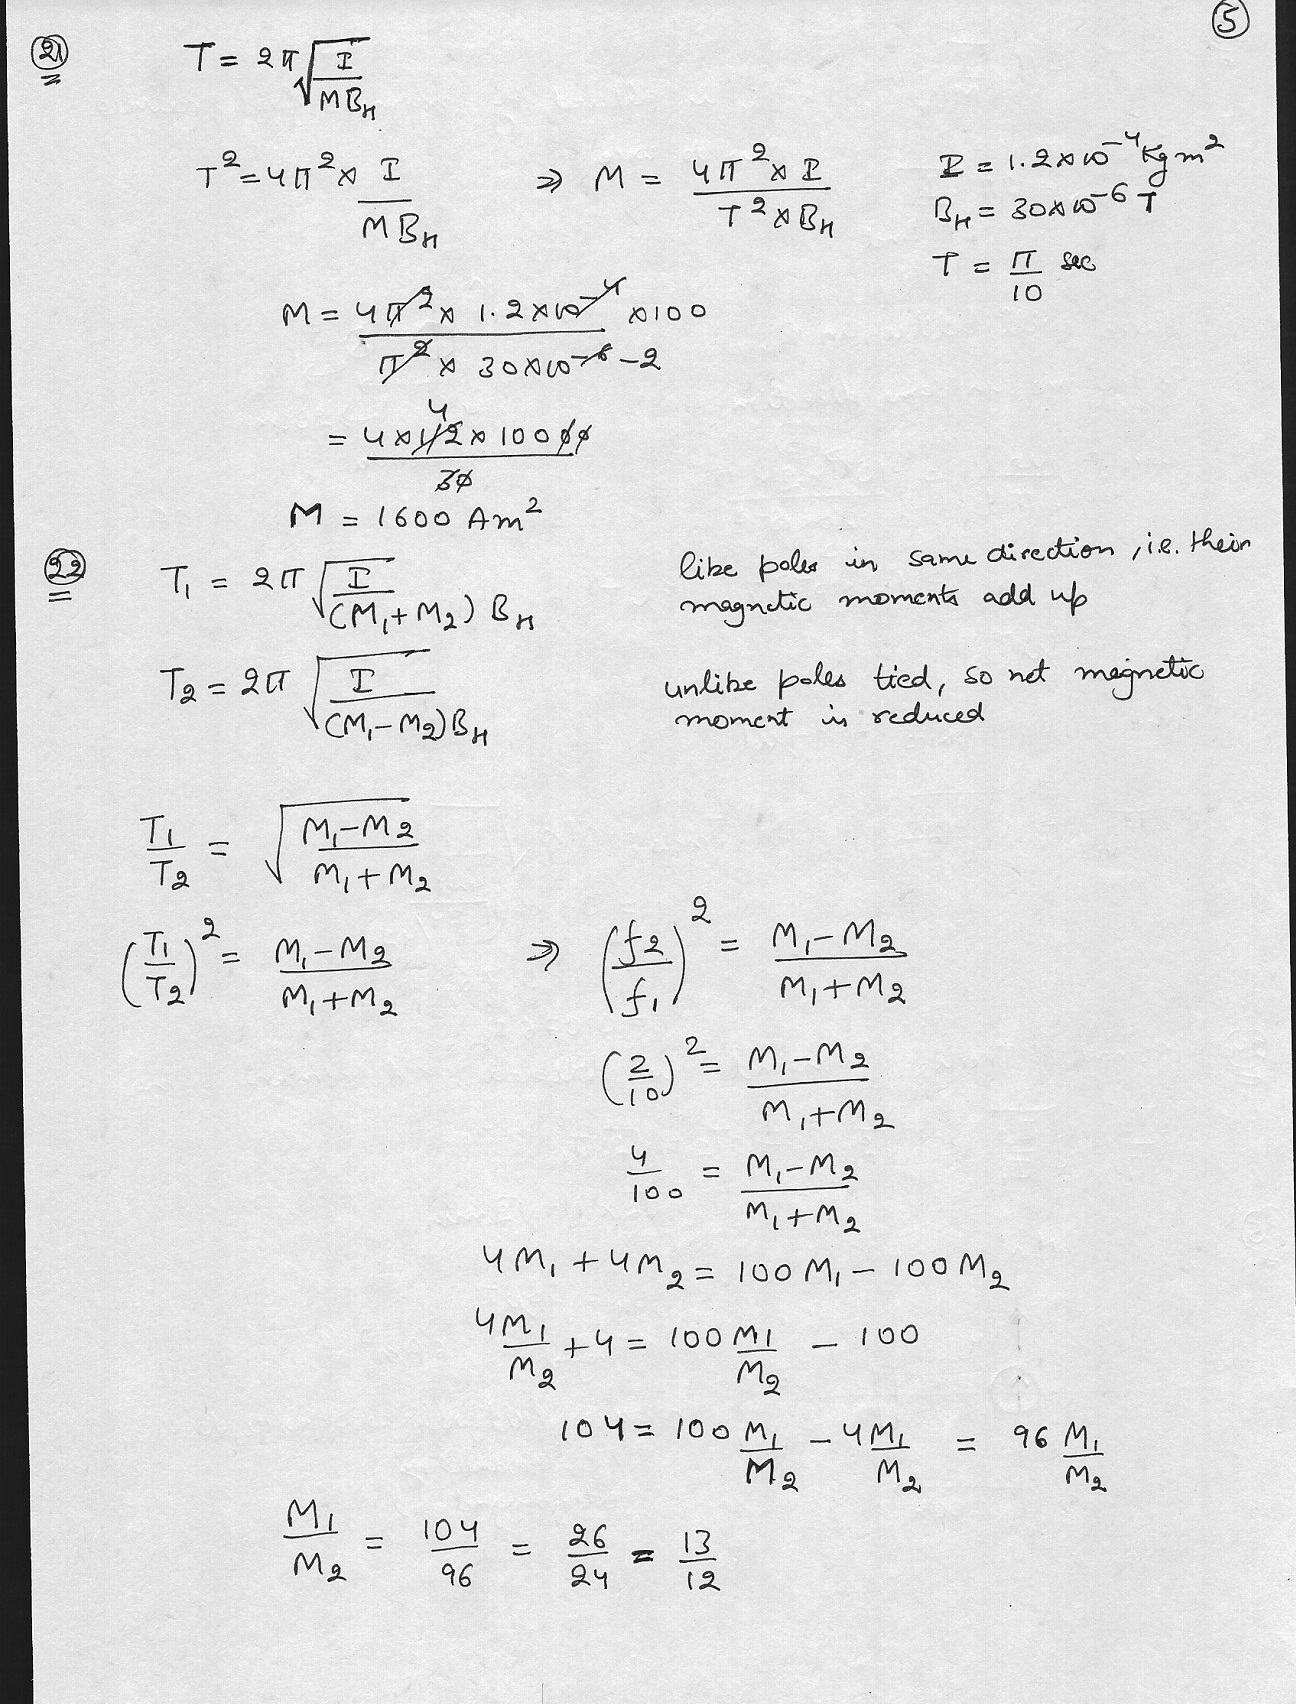 5
21
T = 2π √(I / MB_H)
T² = 4π² × I / MB_H ⇒ M = 4π² × I / T² × B_H
I = 1.2×10⁻⁴ Kg m²
B_H = 30×10⁻⁶ T
T = π/10 sec
M = 4π² × 1.2×10⁻⁴ × 100 / π² × 30×10⁻⁶ -2
= 4 × 12 × 10000 / 30
4
M = 1600 Am²
22
T₁ = 2π √(I / (M₁+M₂) B_H)
like poles in same direction, i.e. their
magnetic moments add up
T₂ = 2π √(I / (M₁-M₂)B_H)
unlike poles tied, so net magnetic
moment is reduced
T₁/T₂ = √(M₁-M₂ / M₁+M₂)
(T₁/T₂)² = M₁-M₂ / M₁+M₂ ⇒ (f₂/f₁)² = M₁-M₂ / M₁+M₂
(2/10)² = M₁-M₂ / M₁+M₂
4/100 = M₁-M₂ / M₁+M₂
4M₁ + 4M₂ = 100M₁ - 100M₂
4M₁/M₂ + 4 = 100 M₁/M₂ - 100
104 = 100 M₁/M₂ - 4M₁/M₂ = 96 M₁/M₂
M₁/M₂ = 104/96 = 26/24 = 13/12